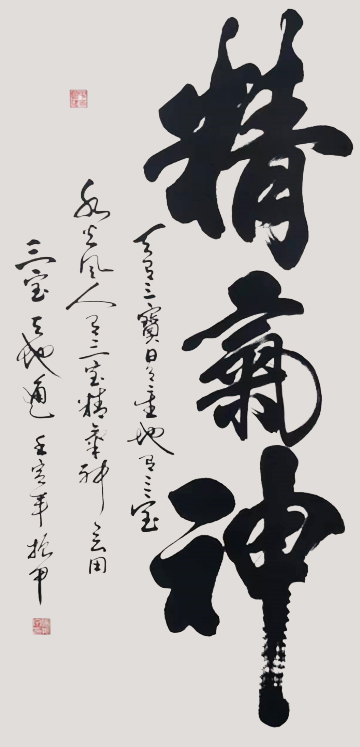 精氣神
天有三寶日月星地有三宝
水火風人有三宝精氣神会用
三宝天地通 壬寅年 振甲